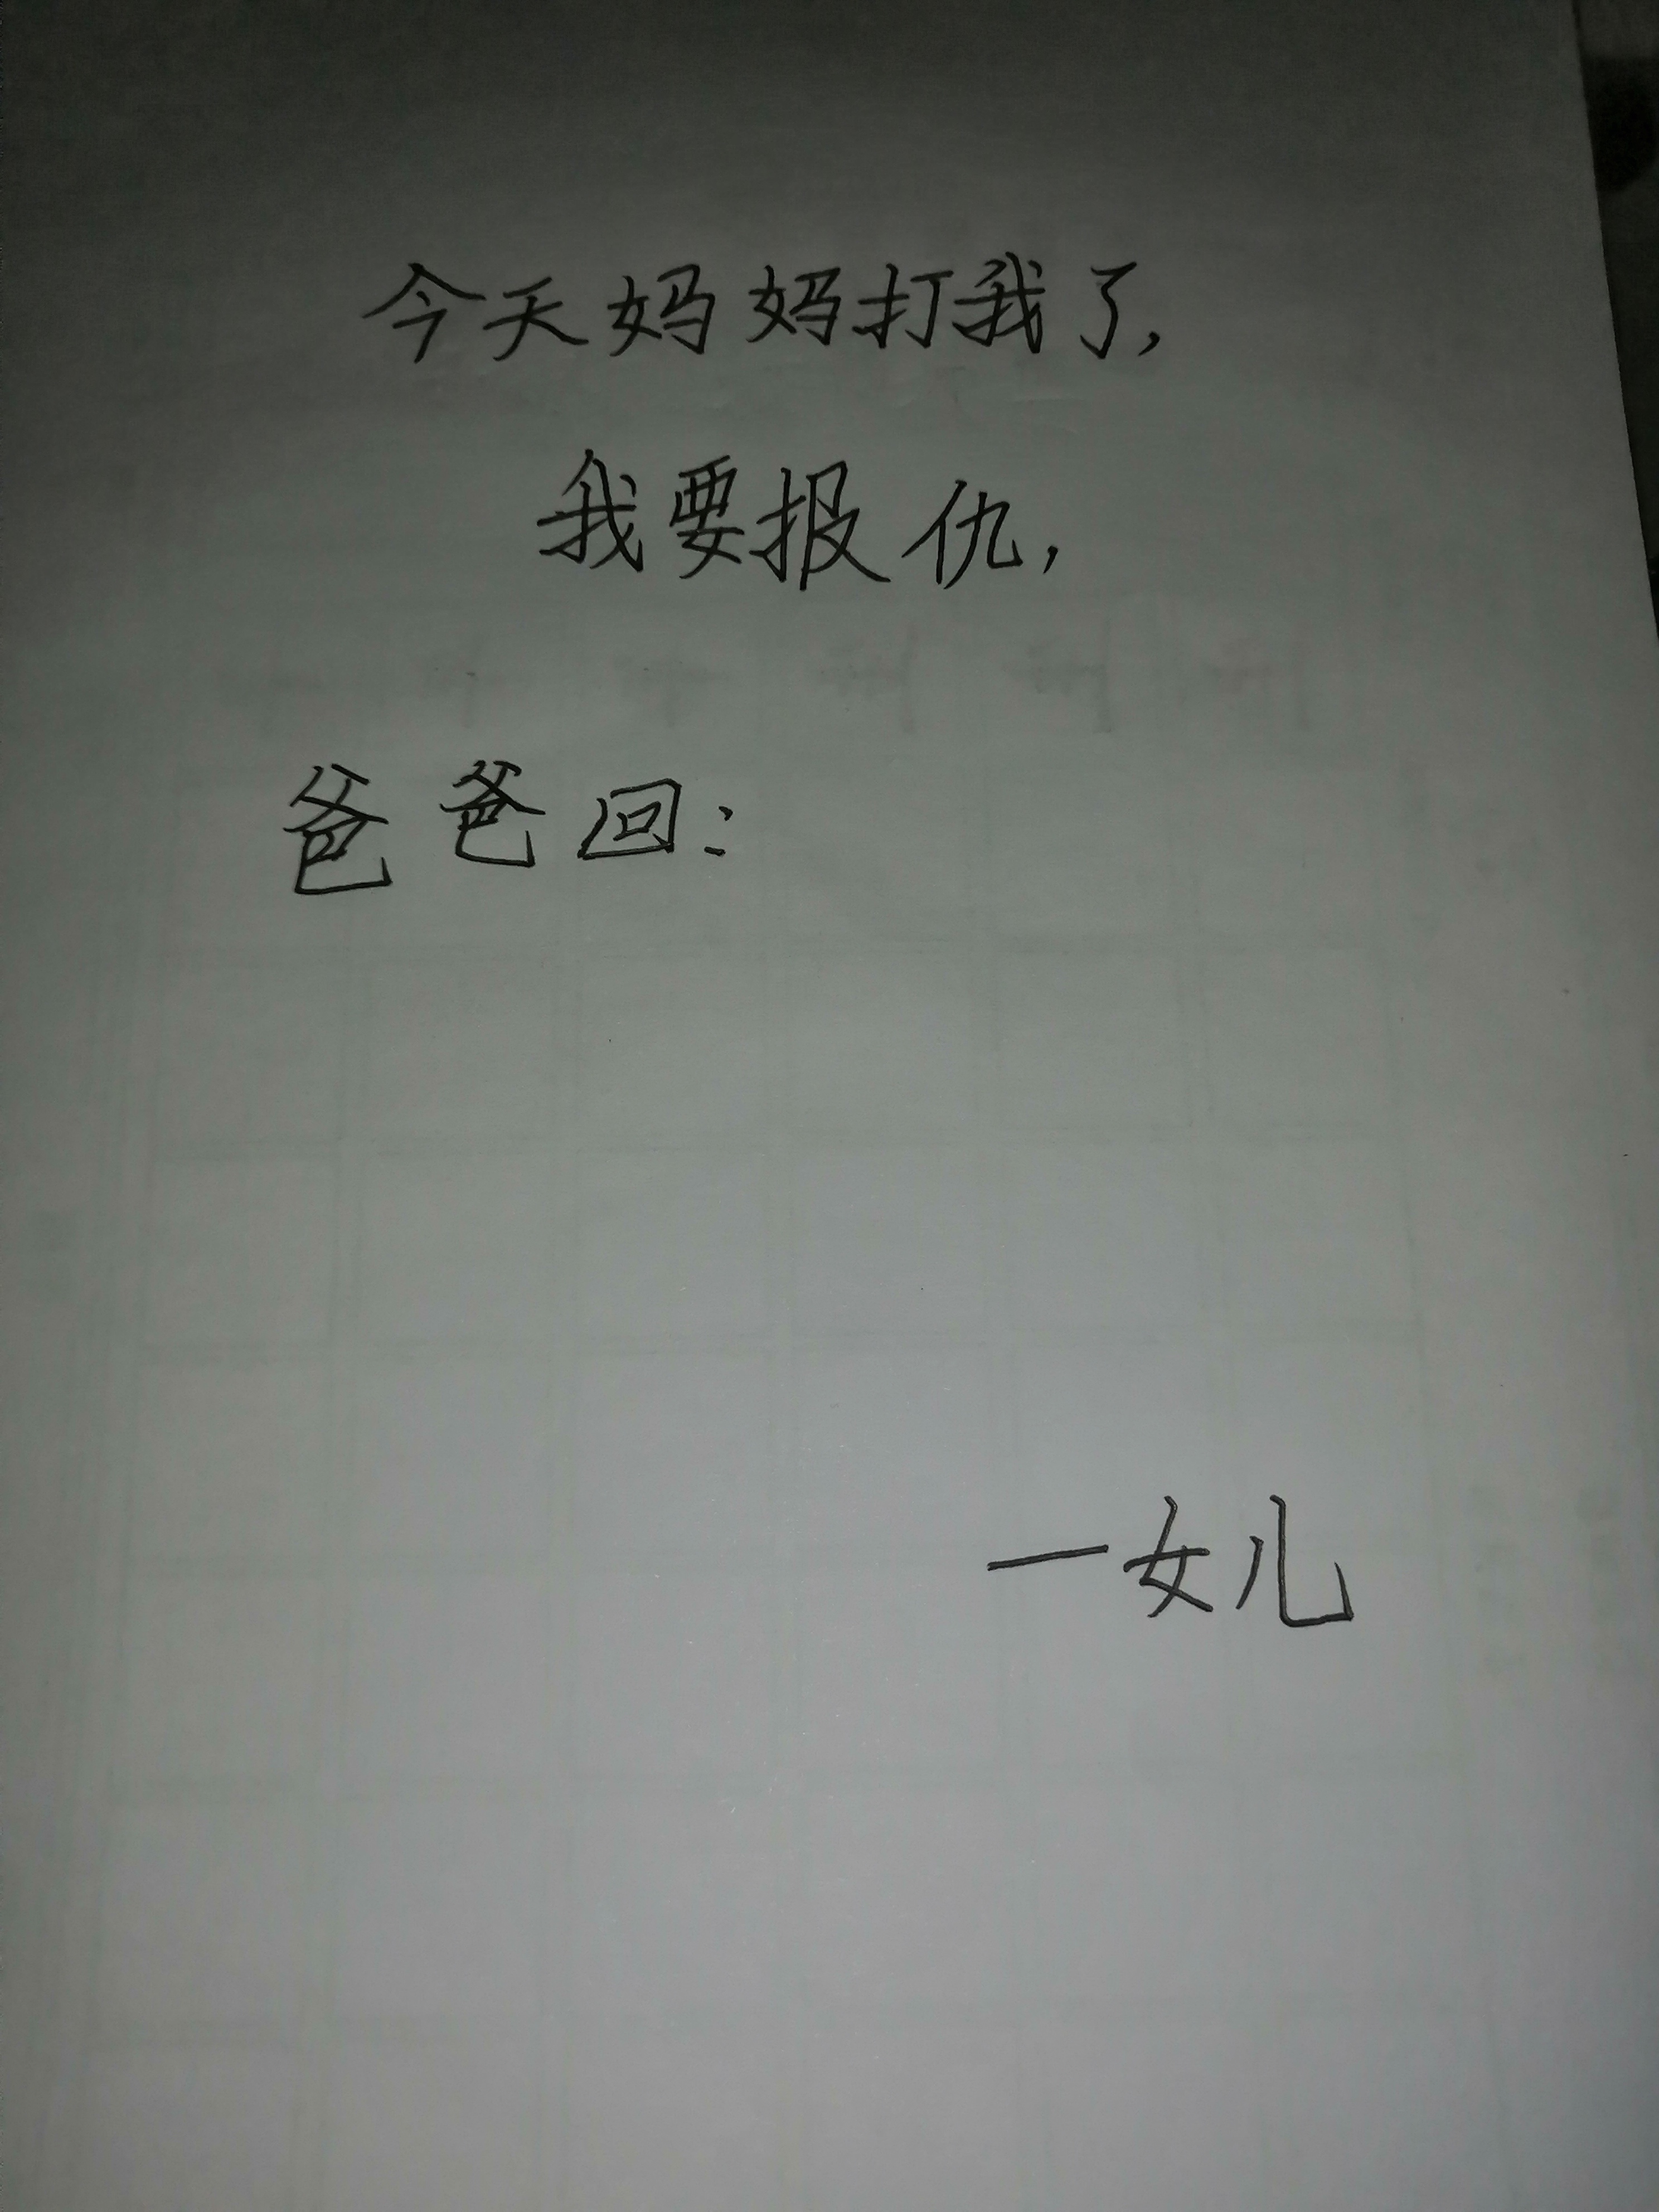 今天妈妈打我了,
我要报仇,
爸爸回:
一女儿